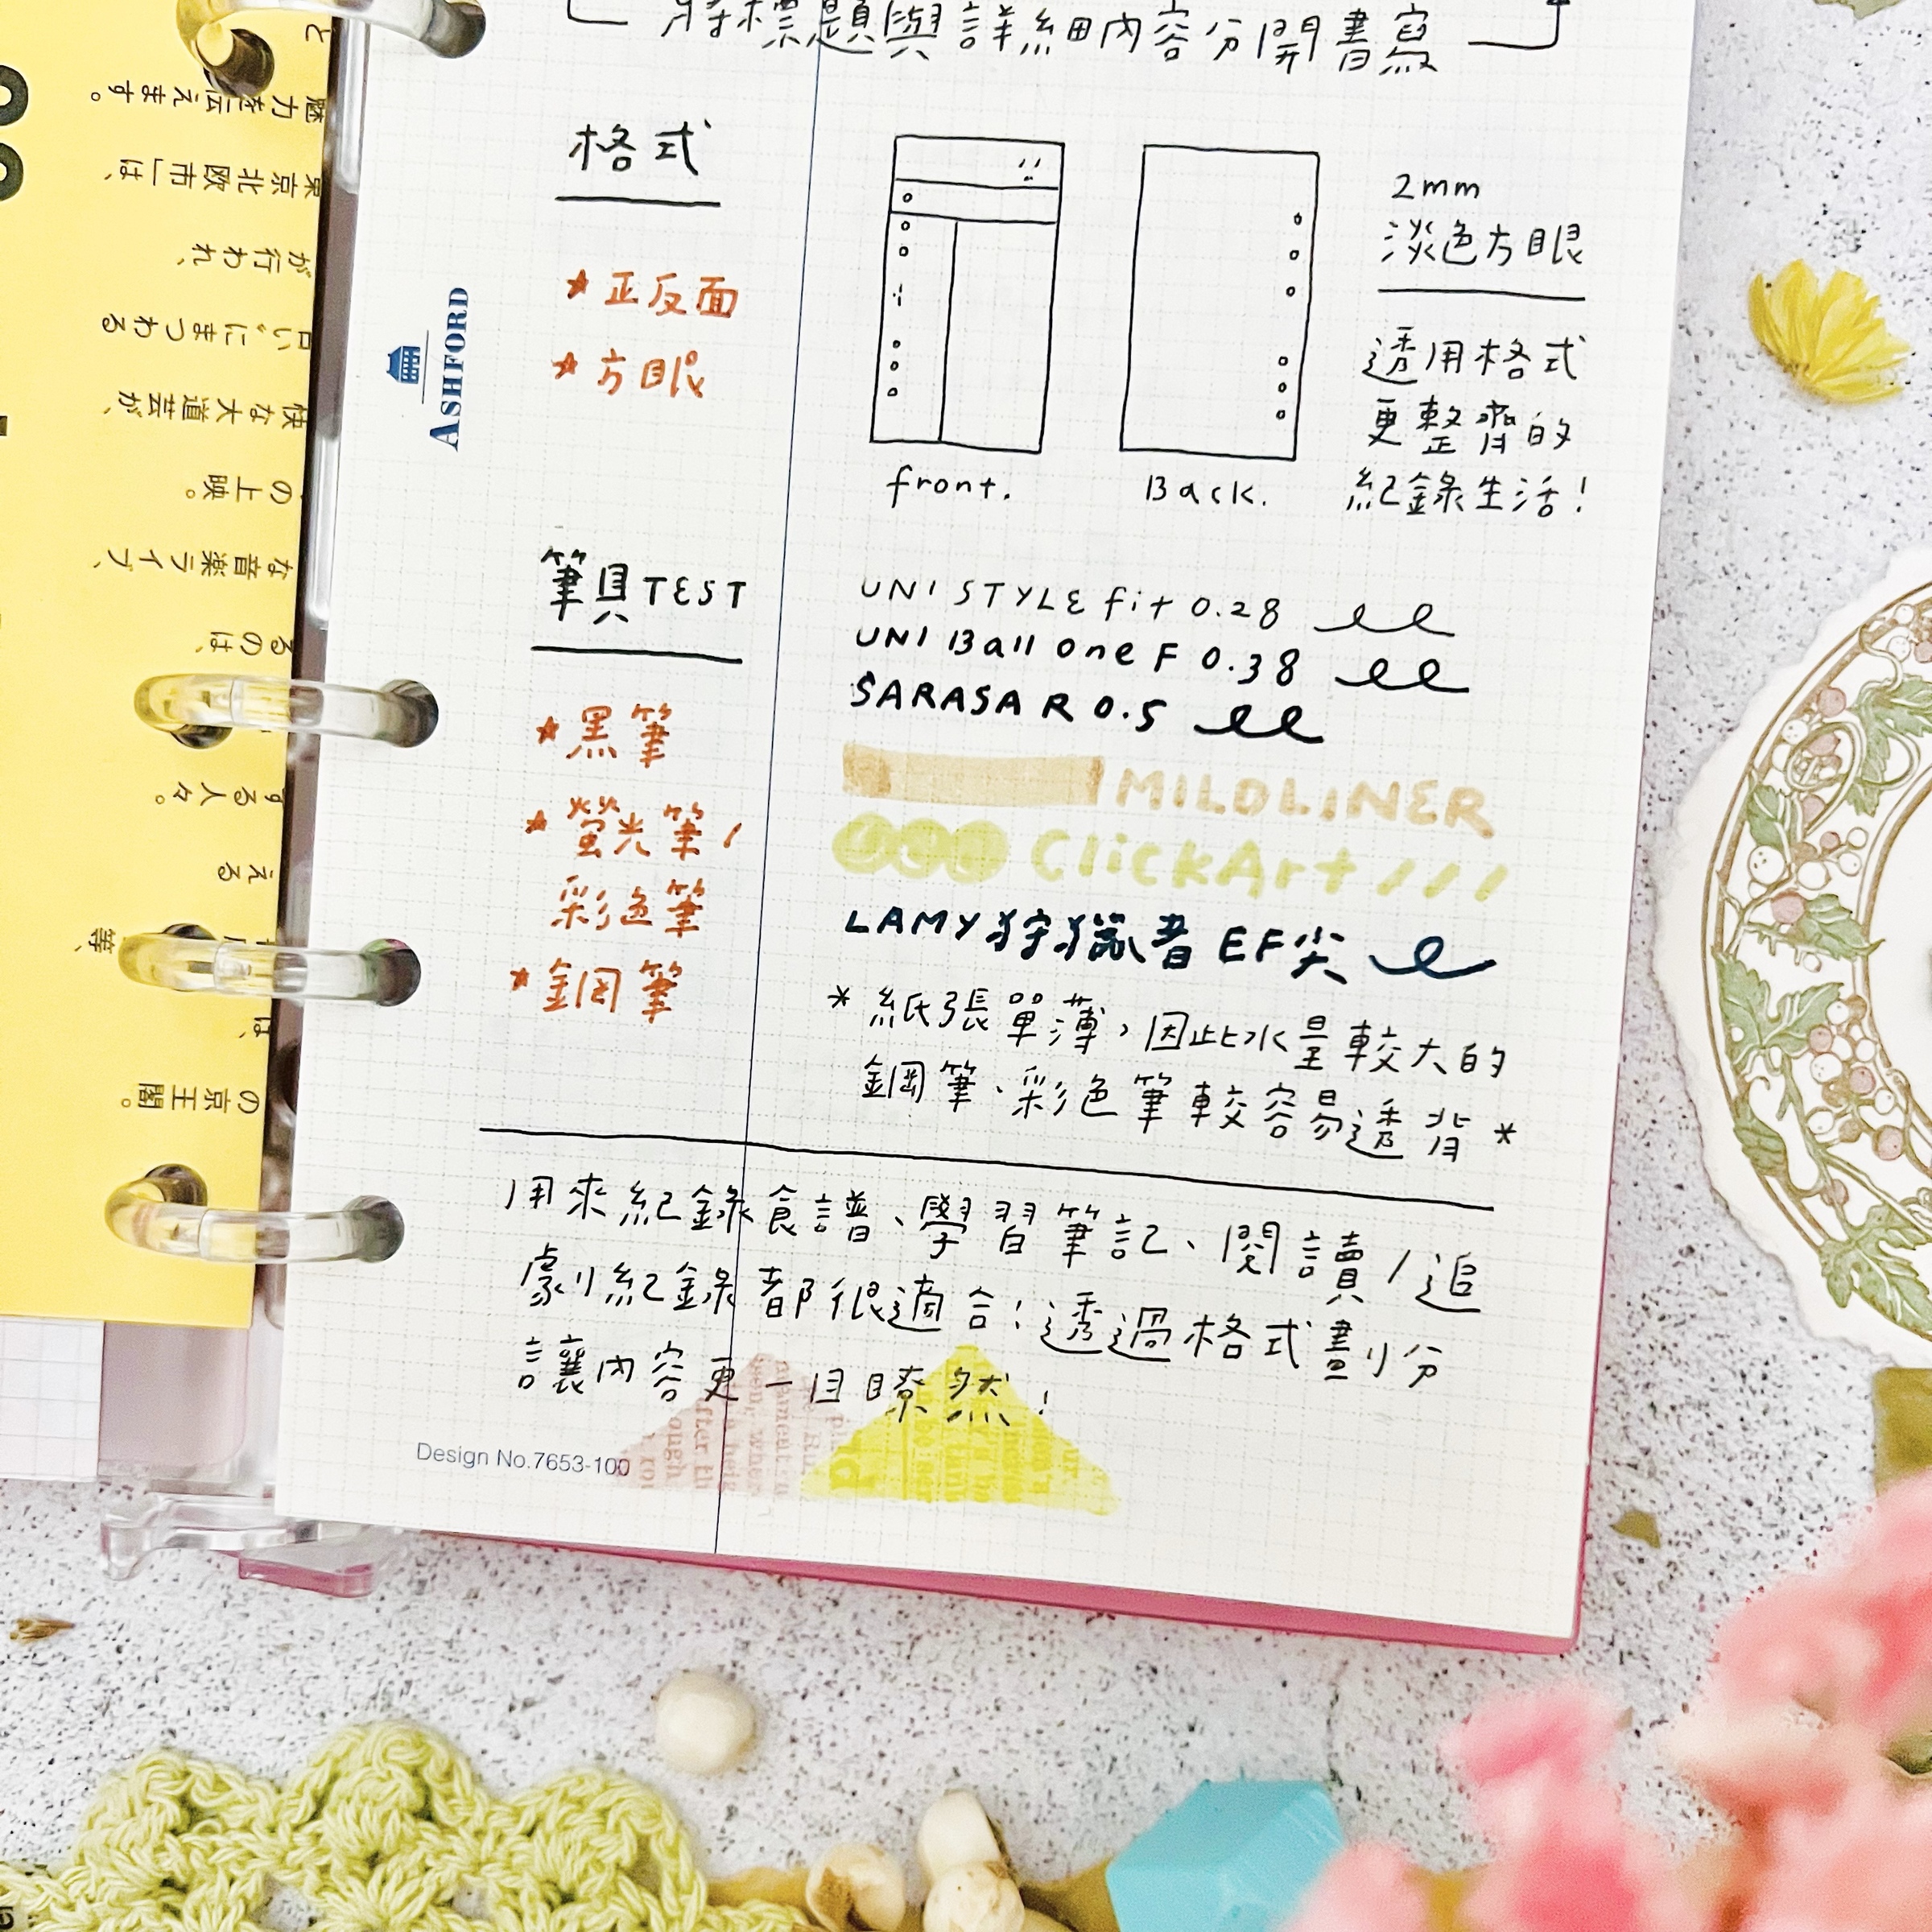 將標題與詳細內容分開書寫
格式
★正反面
★方眼
front.
Back.
2mm
淡色方眼
透用格式
更整齊的
紀錄生活!
ASHFORD
筆具TEST
★黑筆
★螢光筆/
彩色筆
★鋼筆
UNI STYLE fit 0.28
UNI Ball one F 0.38
SARASA R 0.5
MILDLINER
ClickArt ///
LAMY狩獵者 EF尖
*紙張單薄,因此水量較大的
鋼筆、彩色筆較容易透背*
用來紀錄食譜、學習筆記、閱讀/追
劇紀錄都很適合!透過格式劃分
讓內容更一目瞭然!
Design No.7653-100
と
魅力を伝えます。
東京北欧市」は、
が行われ、
にまつわる
快な大道芸が、
の上映。
な音楽ライブ、
るのは、
する人々。
える
等、
は、
の京王閣。